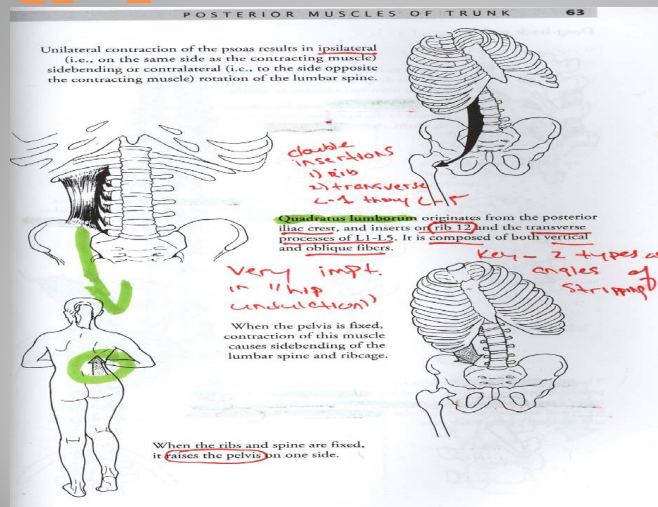 POSTERIOR MUSCLES OF TRUNK 63
Unilateral contraction of the psoas results in ipsilateral
(i.e., on the same side as the contracting muscle)
sidebending or contralateral (i.e., to the side opposite
the contracting muscle) rotation of the lumbar spine.
double
insertions
1) Rib
2) transverse
L-1 throu L-5
Quadratus lumborum originates from the posterior
iliac crest, and inserts on rib 12 and the transverse
processes of L1-L5. It is composed of both vertical
and oblique fibers.
Key - 2 types
angles of
stripping
Very impt.
in "hip
undulation"
When the pelvis is fixed,
contraction of this muscle
causes sidebending of the
lumbar spine and ribcage.
When the ribs and spine are fixed,
it raises the pelvis on one side.